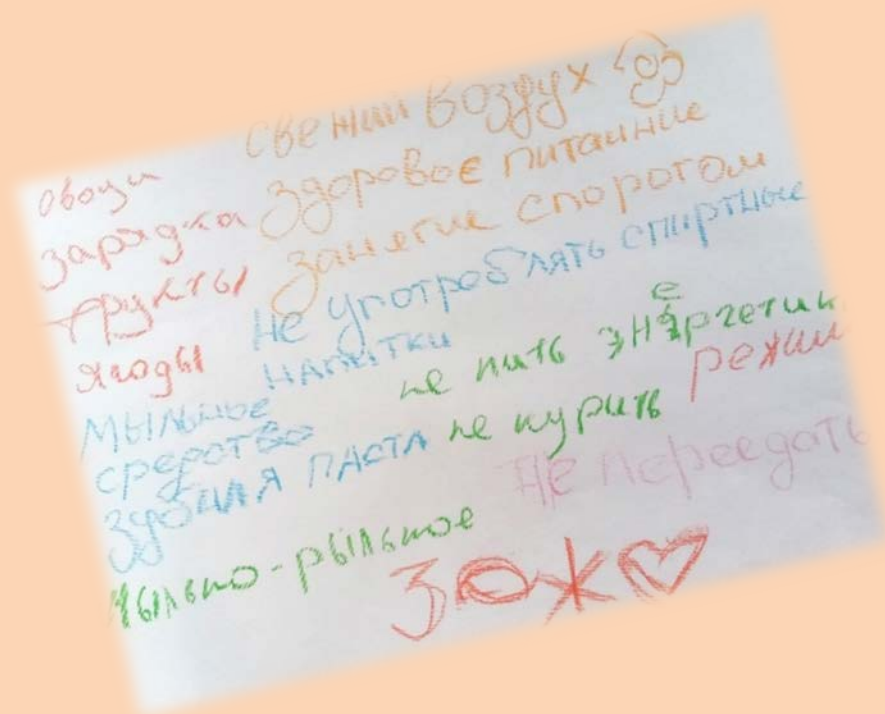 свежий воздух
овощи
зарядка здоровое питанние
фрукты занятие споротом
ягоды Не употроблять спиртные
напитки
мыльное не пить энергетик
средство не курить режим
зубная паста Не переедать
мыльно-рыльное
ЗОЖ